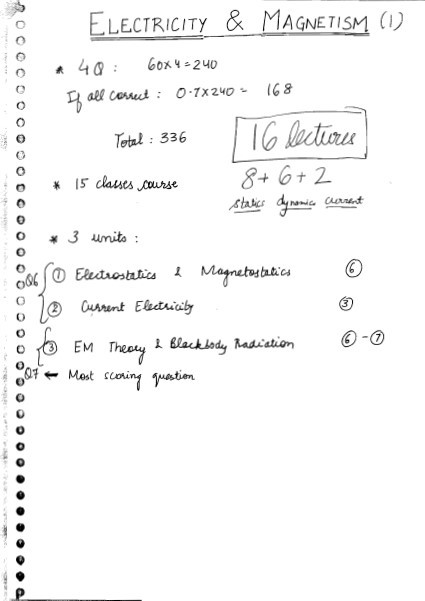 ELECTRICITY & MAGNETISM (1)
* 4Q : 60x4=240
If all correct : 0.7x240 = 168
Total : 336
16 lectures
* 15 classes course
8+6+2
statics dynamic current
* 3 units :
Q6 ① Electrostatics & Magnetostatics ⑥
② Current Electricity ③
③ EM Theory & Blackbody Radiation ⑥-⑦
Q7 ← Most scoring question